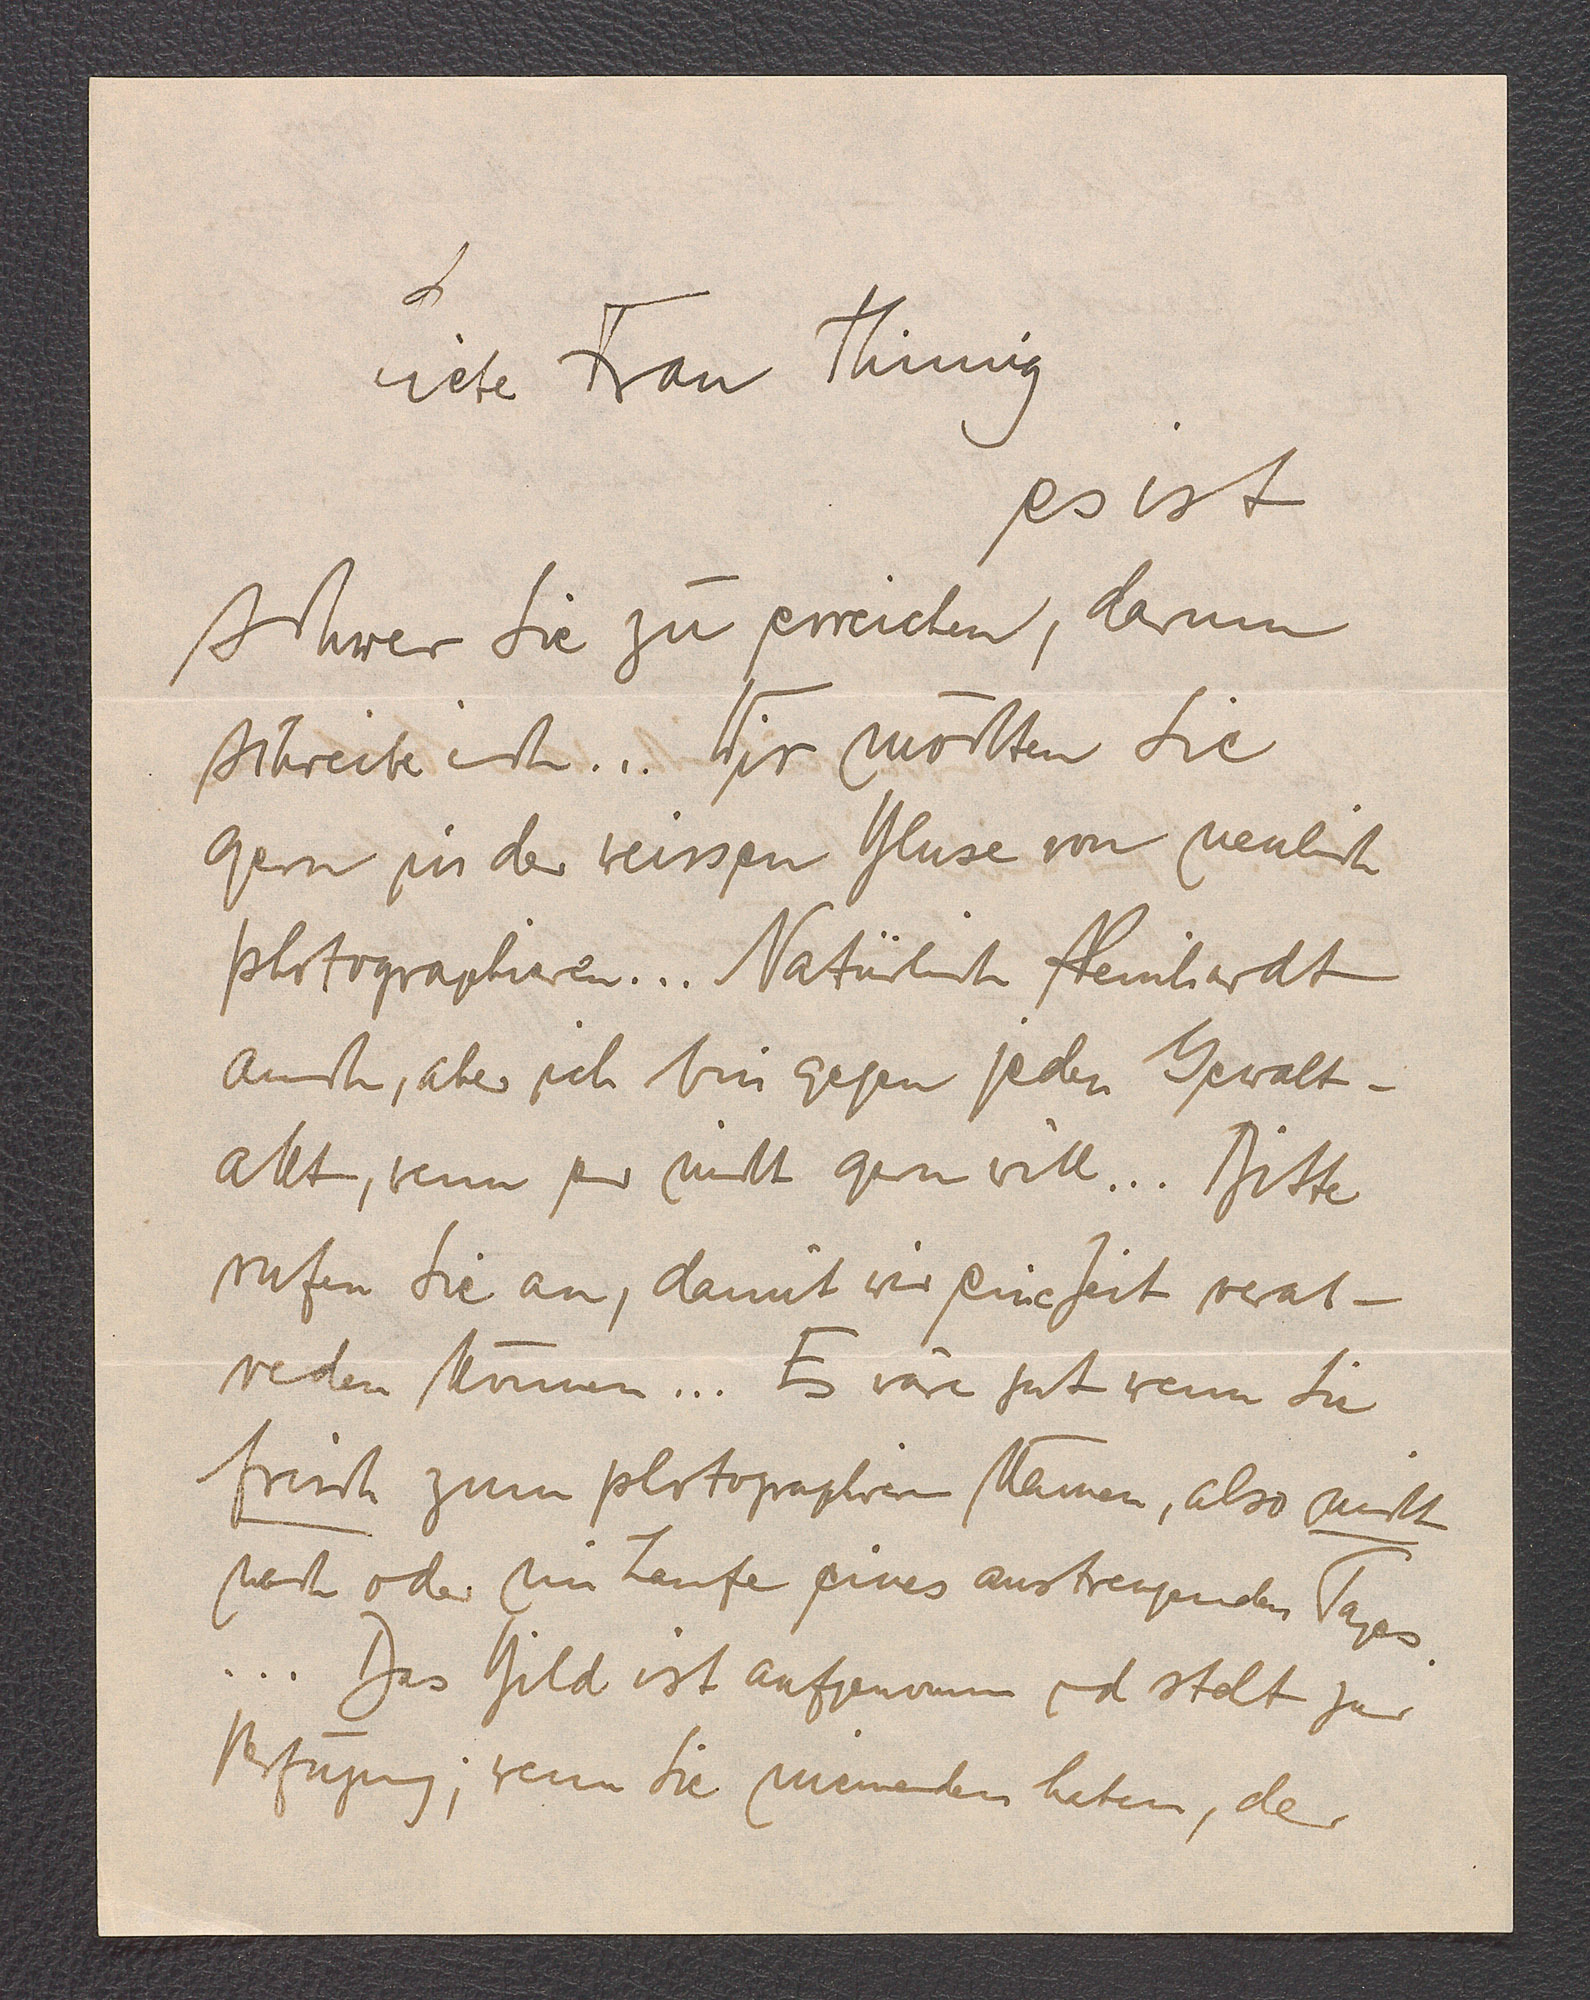 Liebe Frau Thimig
es ist
schwer Sie zu erreichen, darum
schreibe ich... Wir möchten Sie
gern in der weissen Bluse von neulich
photographieren... Natürlich Reinhardt
auch, aber ich bin gegen jeden Gewalt-
akt, wenn er nicht gern will... Bitte
rufen Sie an, damit wir eine Zeit verab-
reden können... Es wäre gut wenn Sie
frisch zum photographieren kämen, also nicht
nach oder im Laufe eines anstrengenden Tages.
... Das Bild ist aufgenommen und steht zur
Verfügung; wenn Sie niemanden haben, der